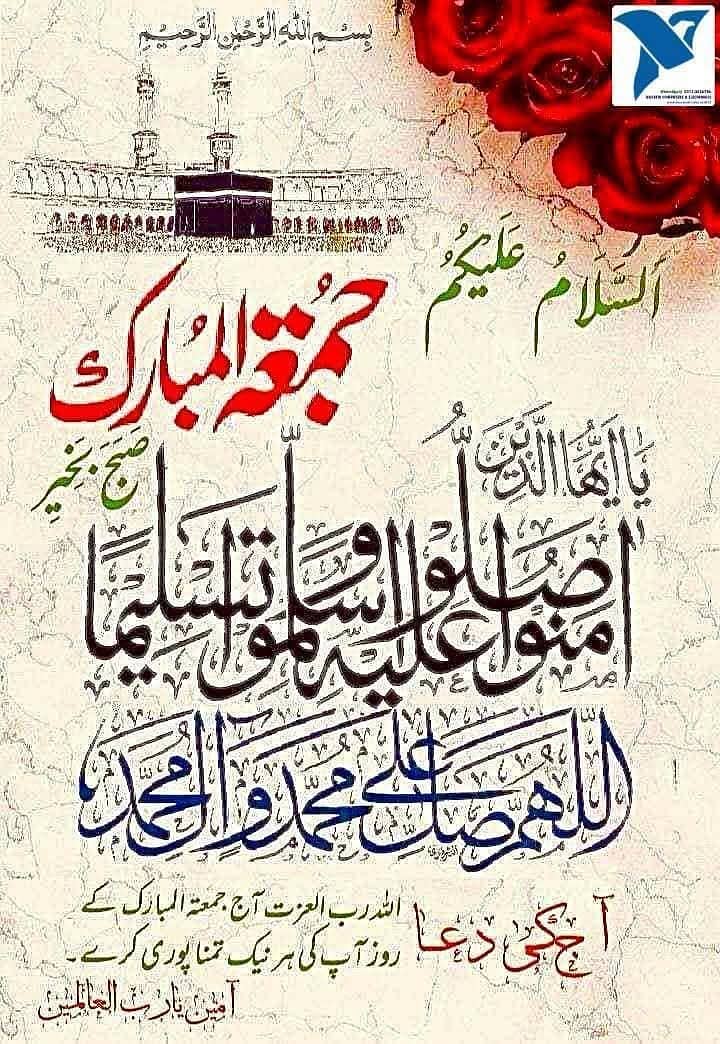 بِسْمِ اللهِ الرَّحْمٰنِ الرَّحِیْمِ
اَلسَّلَامُ عَلَیْکُمْ
جُمُعَۃُ المُبَارک
صُبح بَخیر
یَا اَیُّهَا الَّذِیْنَ
اٰمَنُوْا صَلُّوْا عَلَیْهِ وَسَلِّمُوْا تَسْلِیْمًا
اَللّٰهُمَّ صَلِّ عَلٰی مُحَمَّدٍ وَّ اٰلِ مُحَمَّدٍ
آج کی دعا
اللہ رب العزت آج جمعۃ المبارک کے
روز آپ کی ہر نیک تمنا پوری کرے۔
آمین یا رب العالمین